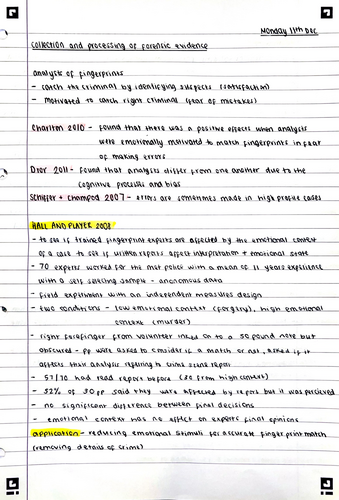 Monday 11th Dec
Collection and processing of forensic evidence
analysis of fingerprints
- catch the criminal by identifying suspects (satisfaction)
- motivated to catch right criminal (fear of mistakes)
Charlton 2010 - found that there was a positive effects when analysts
were emotionally motivated to match fingerprints in fear
of making errors
Dror 2011 - found that analysts differ from one another due to the
cognitive process and bias
Schiffer + Champod 2007 - errors are sometimes made in high profile cases
HALL AND PLAYER 2008
- to see if trained fingerprint experts are affected by the emotional context
of a case to see if written reports affect interpretation + emotional state
- 70 experts worked for the met police with a mean of 11 years experience
with a self selecting sample - anonymous data
- field experiment with an independent measures design
- two conditions - low emotional context (forgery), high emotional
context (murder)
- right forefinger from volunteer inked on to a 50 pound note but
obscured - pp were asked to consider if a match or not, asked if it
affects their analysis referring to crime scene report
- 57/70 had read report before (30 from high context)
- 52% of 30 pp said they were affected by report but it was percieved
- no significant difference between final decisions
- emotional context has no affect on experts final opinions
application - reducing emotional stimuli for accurate fingerprint match
(removing details of crime)